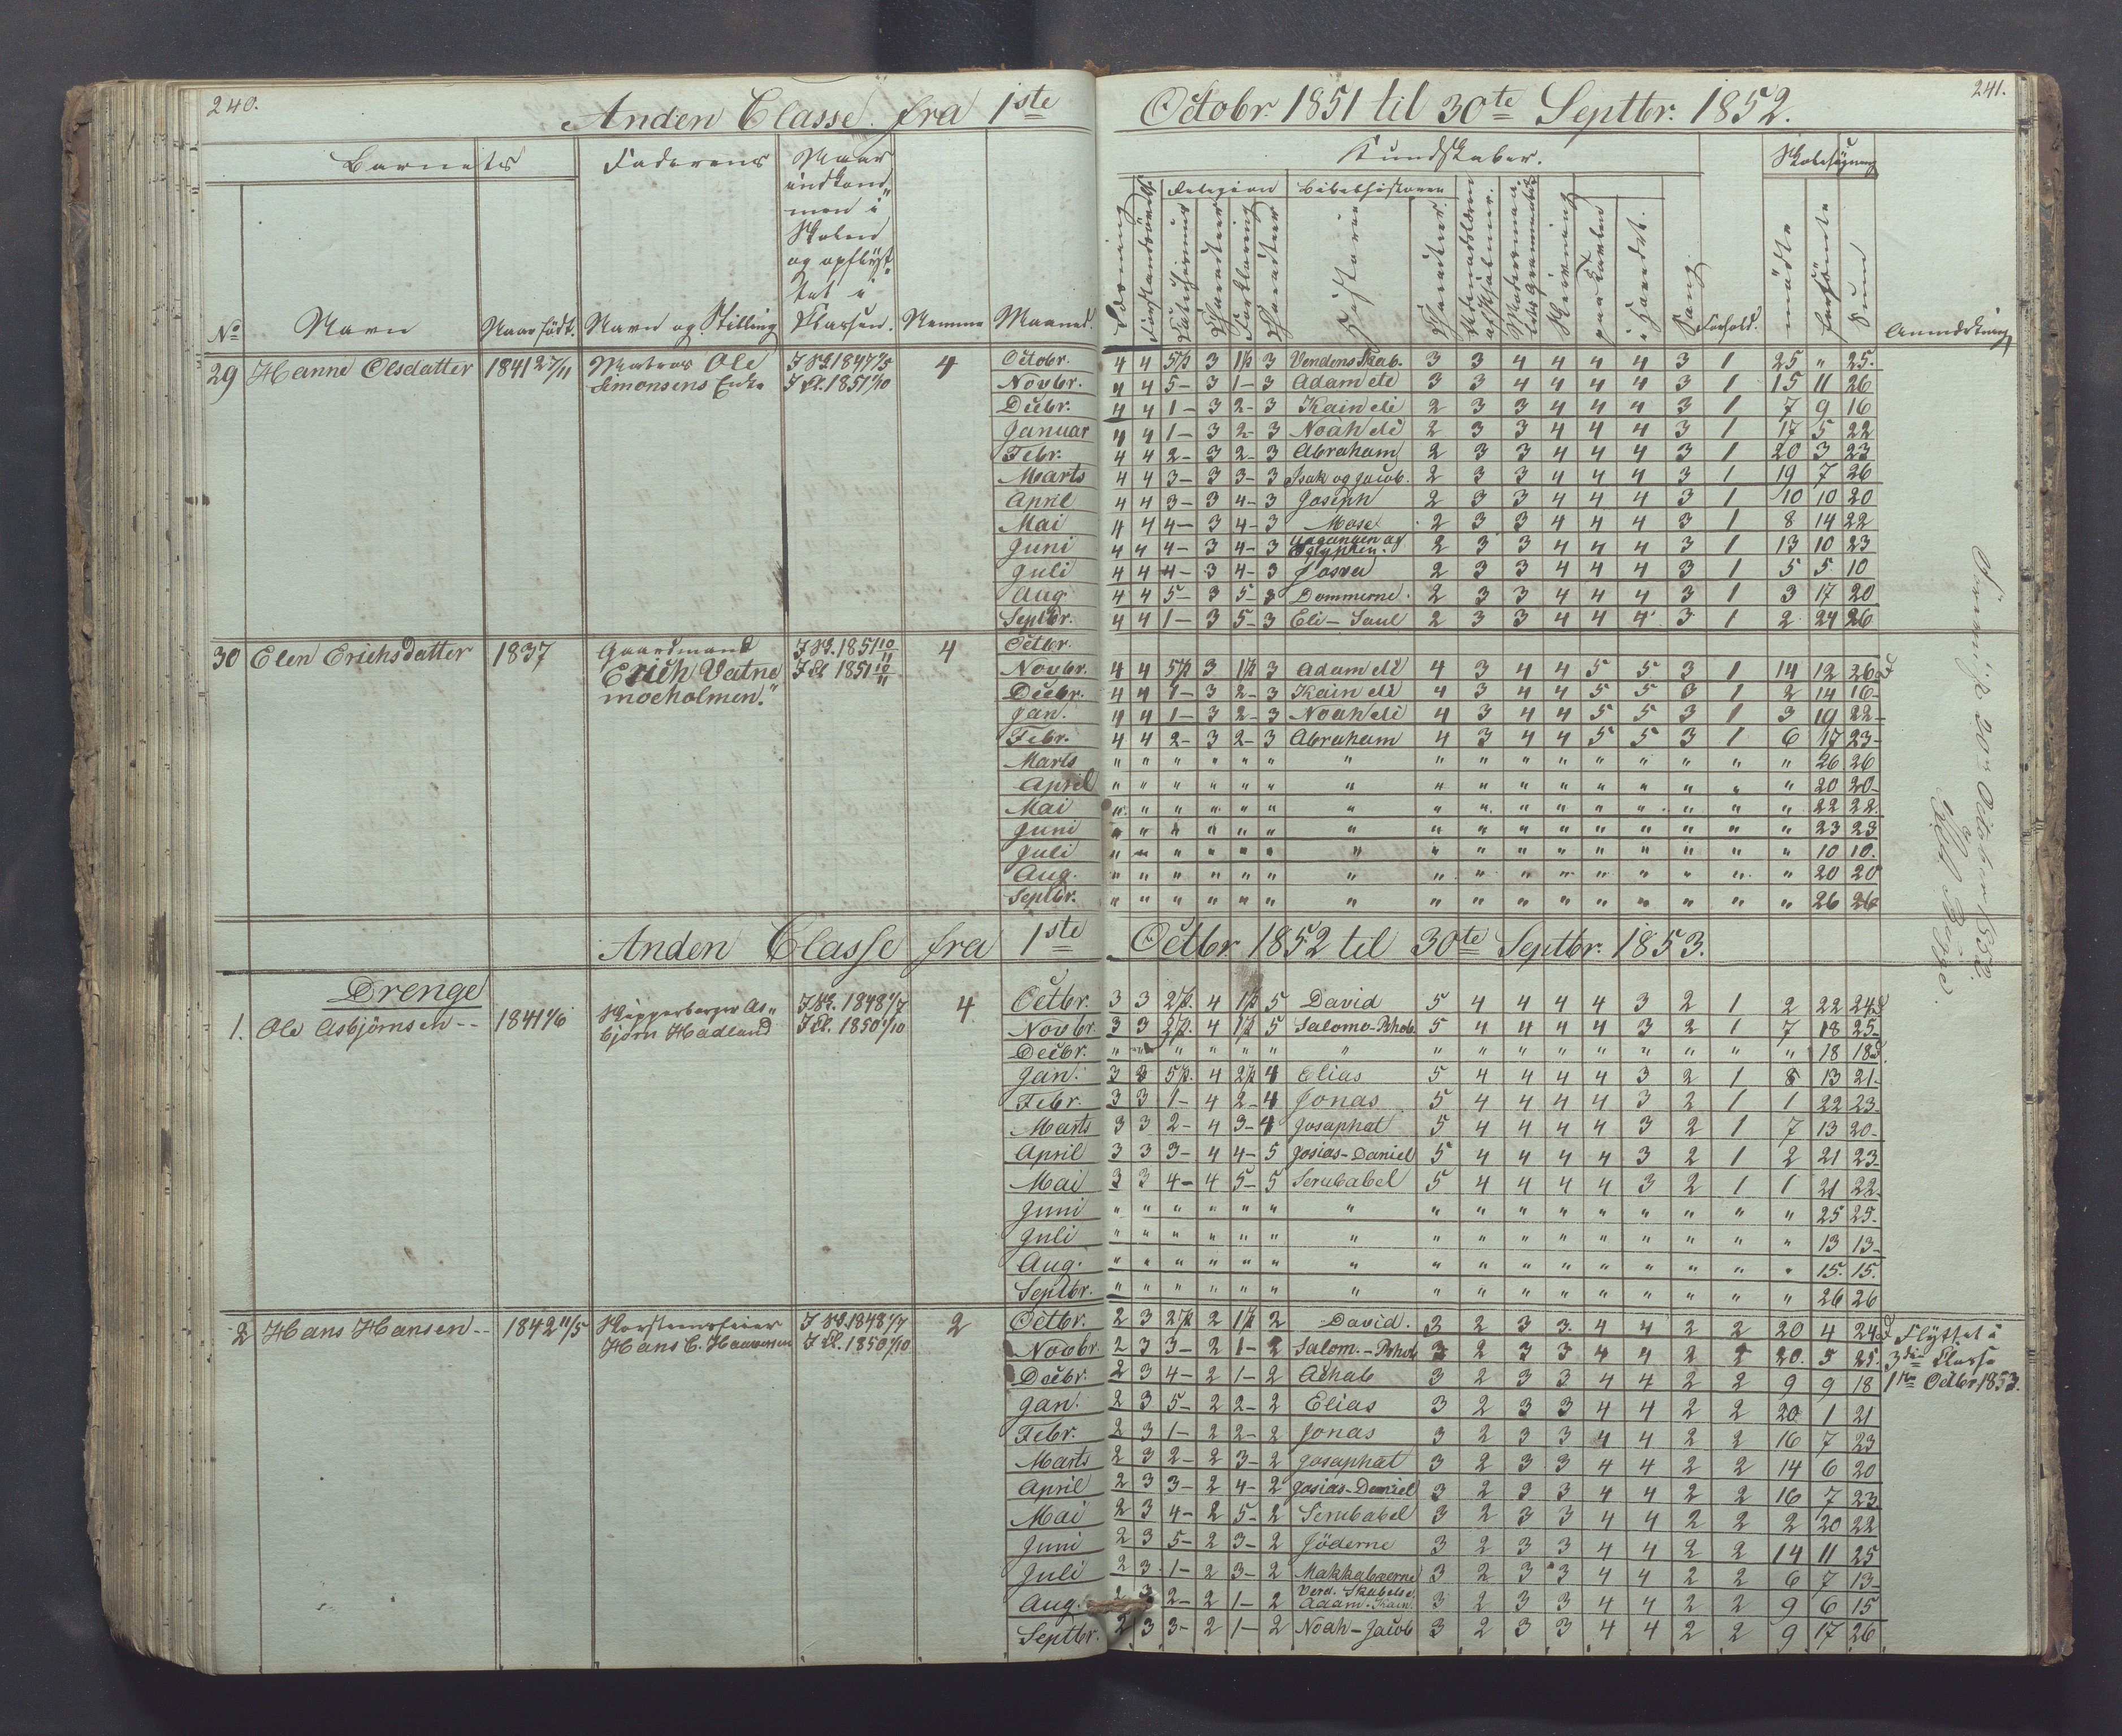 240.
Anden Classe fra 1ste Octobr. 1851 til 30te Septbr. 1852.
241.
Barnets
Faderens
Naar
indkom-
men i
Skolen
og opflyt-
tet i
Classen.
Kundskaber.
Skolesøgning
Religion
Bibelhistorien
No
Navn
Naar født.
Navn og Stilling
Nemme
Maaned.
Historie
Sang
Forhold.
mødte
forsømte
Sum
Anmærkning
29 Hanne Olsdatter 1841 27/11 Matros Ole Simonsens Enke I Sk. 1847 I Cl. 1851 1/10 4
Octobr. 4 4 5p 3 1p 3 Verdens Skab. 3 3 4 4 4 4 3 1 25 " 25.
Novbr. 4 4 5- 3 1- 3 Adam etc 3 3 4 4 4 4 3 1 15 11 26
Decbr. 4 4 1- 3 2- 3 Kain etc 2 3 3 4 4 4 3 1 7 9 16
Januar 4 4 1- 3 2- 3 Noah etc 2 3 3 4 4 4 3 1 17 5 22
Febr. 4 4 2- 3 2- 3 Abraham 2 3 3 4 4 4 3 1 20 3 23
Marts 4 4 3- 3 3- 3 Isak og Jacob. 2 3 3 4 4 4 3 1 19 7 26
April 4 4 3- 3 4- 3 Joseph 2 3 3 4 4 4 3 1 10 10 20
Mai 4 4 4- 3 4- 3 Mose 2 3 3 4 4 4 3 1 8 14 22
Juni 4 4 4- 3 4- 3 Udgangen af Egypten. 2 3 3 4 4 4 3 1 13 10 23
Juli 4 4 4- 3 4- 3 Josva 2 3 3 4 4 4 3 1 5 5 10
Aug 4 4 5- 3 5- 3 Dommerne. 2 3 3 4 4 4 3 1 3 17 20
Septbr. 4 4 1- 3 5- 3 Eli - Saul 2 3 3 4 4 4 3 1 2 24 26
30 Elen Erichsdatter 1837 Gaardmand Erich Vatne moeholmen. I Sk. 1851 10/11 I Cl 1851 10/11 4
Octbr.
Novbr. 4 4 5p 3 1p 3 Adam etc 4 3 4 4 5 5 3 1 14 12 26
Decbr. 4 4 1- 3 2- 3 Kain etc 4 3 4 4 5 5 3 1 2 14 16-
Jan. 4 4 1- 3 2- 3 Noah etc 4 3 4 4 5 5 3 1 3 19 22-
Febr. 4 4 2- 3 2- 3 Abraham 4 3 4 4 5 5 3 1 6 17 23-
Marts " " " " " " " " " " " " " " " " 26 26
April " " " " " " " " " " " " " " " " 20 20-
Mai " " " " " " " " " " " " " " " " 22 22.
Juni " " " " " " " " " " " " " " " " 23 23
Juli " " " " " " " " " " " " " " " " 10 10.
Aug. " " " " " " " " " " " " " " " " 20 20
Septbr. " " " " " " " " " " " " " " " " 26 26
Anden Classe fra 1ste Octbr 1852 til 30te Septbr. 1853.
Drenge
1. Ole Asbjörnsen -- 1841 1/6 Skipperborger As- björn Hadland I Sk. 1848 1/7 I Cl. 1850 1/10 4.
Octbr. 3 3 2p. 4 1p 5 David 5 4 4 4 4 3 2 1 2 22 24
Novbr. 3 3 2p. 4 1p 5 Salomo-Rhob. 5 4 4 4 4 3 2 1 7 18 25-
Decbr. " " " " " " " " " " " " " " " " 18 18
Jan. 3 3 5p. 4 2p 4 Elias 5 4 4 4 4 3 2 1 8 13 21-
Febr. 3 3 1- 4 2- 4 Jonas 5 4 4 4 4 3 2 1 1 22 23-
Marts 3 3 2- 4 3- 4 Josaphat 5 4 4 4 4 3 2 1 7 13 20-
April 3 3 3- 4 4- 5 Josias-Daniel 5 4 4 4 4 3 2 1 2 21 23-
Mai 3 3 4- 4 5- 5 Serubabel 5 4 4 4 4 3 2 1 1 21 22-
Juni " " " " " " " " " " " " " " " " 25 25-
Juli " " " " " " " " " " " " " " " " 13 13-
Aug. " " " " " " " " " " " " " " " " 15. 15.
Septbr. " " " " " " " " " " " " " " " " 26 26
2 Hans Hansen -- 1842 11/5 Skorsteensfeier Hans C. I Sk. 1848 1/7 I Cl. 1850 1/10 2
Octbr. 2 3 2p 2 1p 2 David. 3 2 3 3 4 4 2 2 20 4 24
Novbr. 2 3 3- 2 1- 2 Salom.-Rhob 3 2 3 3 4 4 2 2 20. 5 25.
Decbr. 2 3 4- 2 1- 2 Achab 3 2 3 3 4 4 2 2 9 9 18
Jan. 2 3 5- 2 2- 2 Elias 3 2 3 3 4 4 2 2 20 1 21
Febr. 2 3 1- 2 2- 2 Jonas 3 2 3 3 4 4 2 2 16 7 23
Marts 2 3 2- 2 3- 2 Josaphat 3 2 3 3 4 4 2 2 14 6 20
April 2 3 3- 2 4- 2 Josias-Daniel 3 2 3 3 4 4 2 2 16 7 23
Mai 2 3 4- 2 5- 2 Serubabel 3 2 3 3 4 4 2 2 2 20 22
Juni 2 3 5- 2 3- 2 Jöderne 3 2 3 3 4 4 2 2 14 11 25
Juli 2 3 1- 2 3- 2 Makkabæerne 3 2 3 3 4 4 2 2 6 7 13-
Aug. 2 3 2- 2 1- 2 Verd. Skabelse Adam-Kain. 3 2 3 3 4 4 2 2 9 6 15
Septbr. 2 3 3- 2 1- 2 Noah-Jacob 3 2 3 3 4 4 2 2 9 17 26
Flyttet i
3die Classe
1ste Octbr 1853.
Stavanger 20de October 1852.